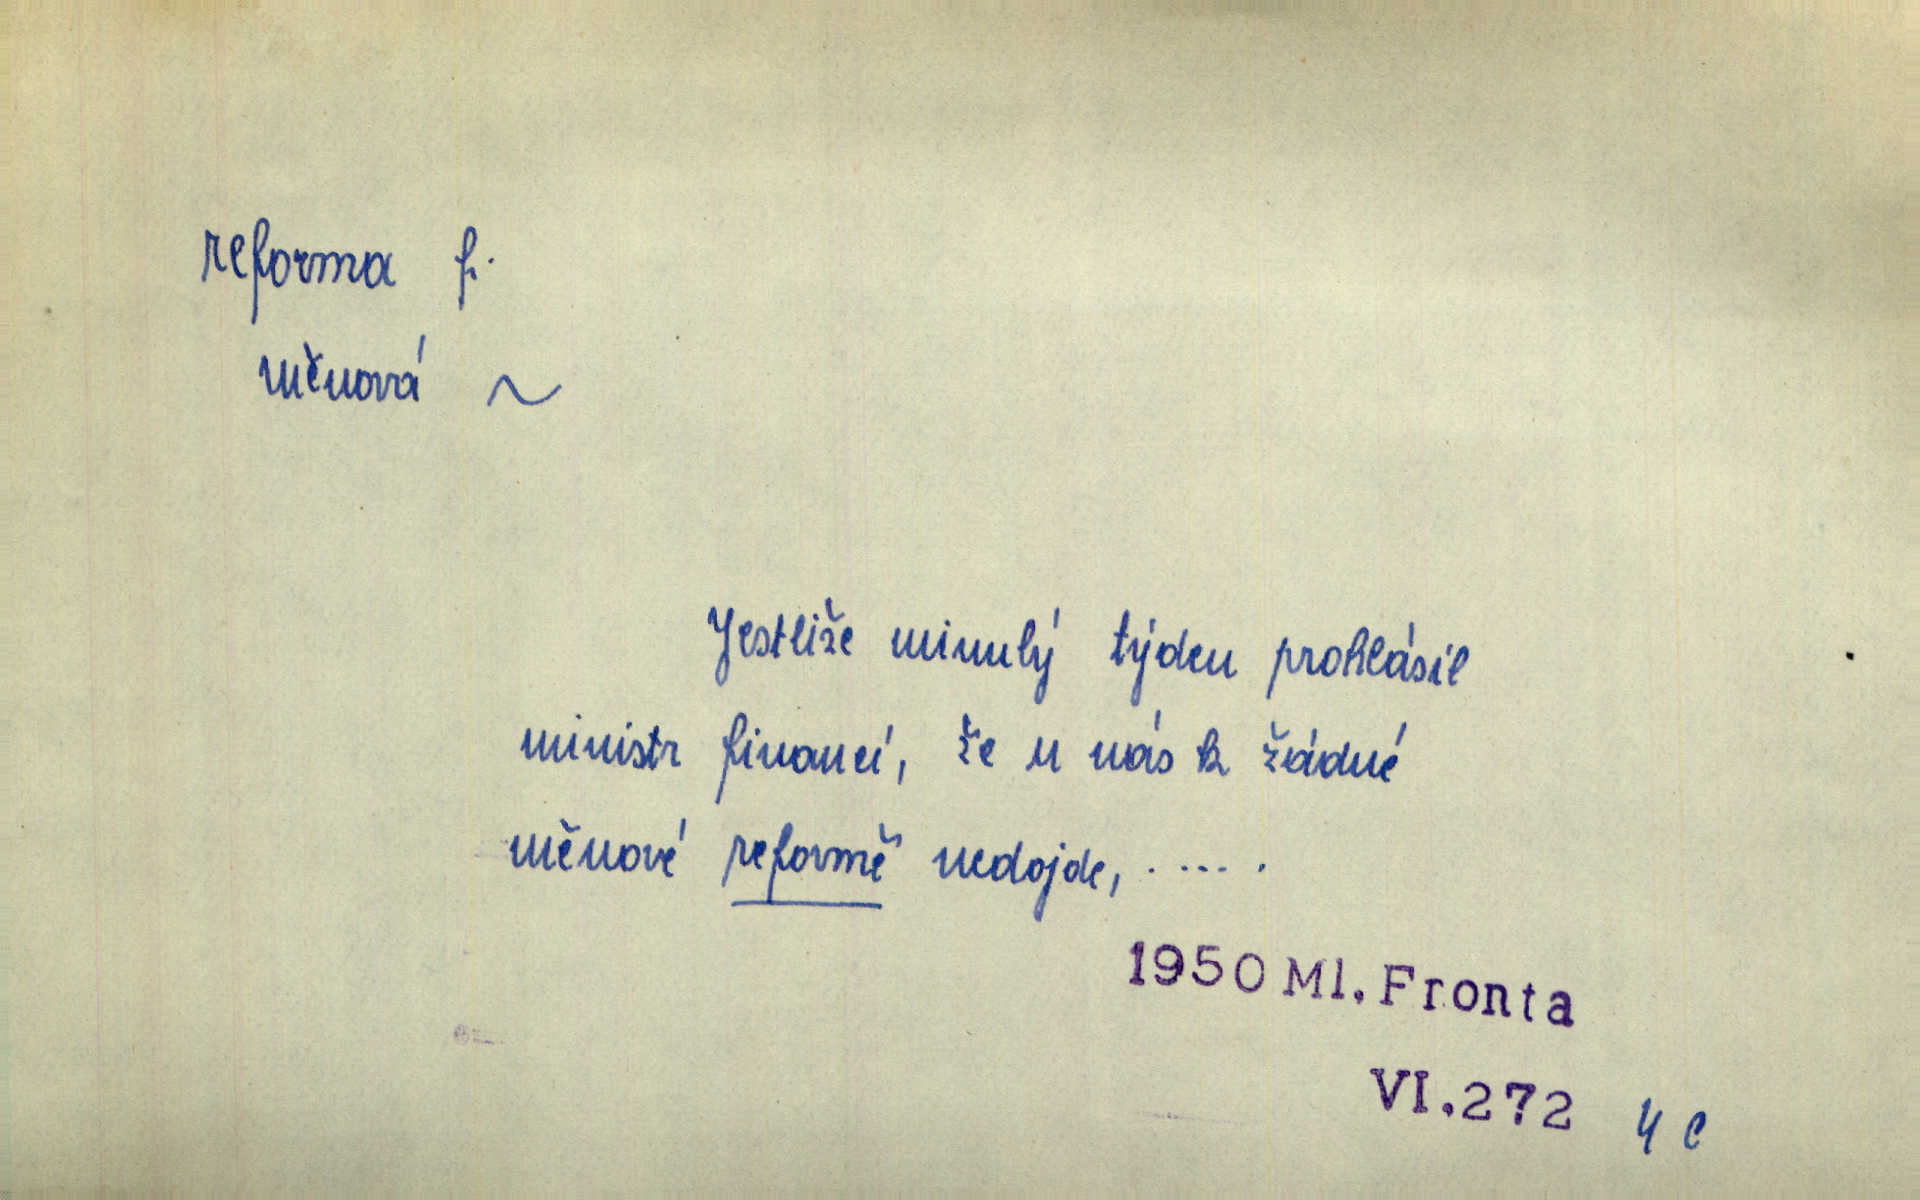 reforma f.
měnová ~
Jestliže minulý týden prohlásil
ministr financí, že u nás k žádné
měnové reformě nedojde, . . . . .
1950 Ml. Fronta
VI.272 4 c